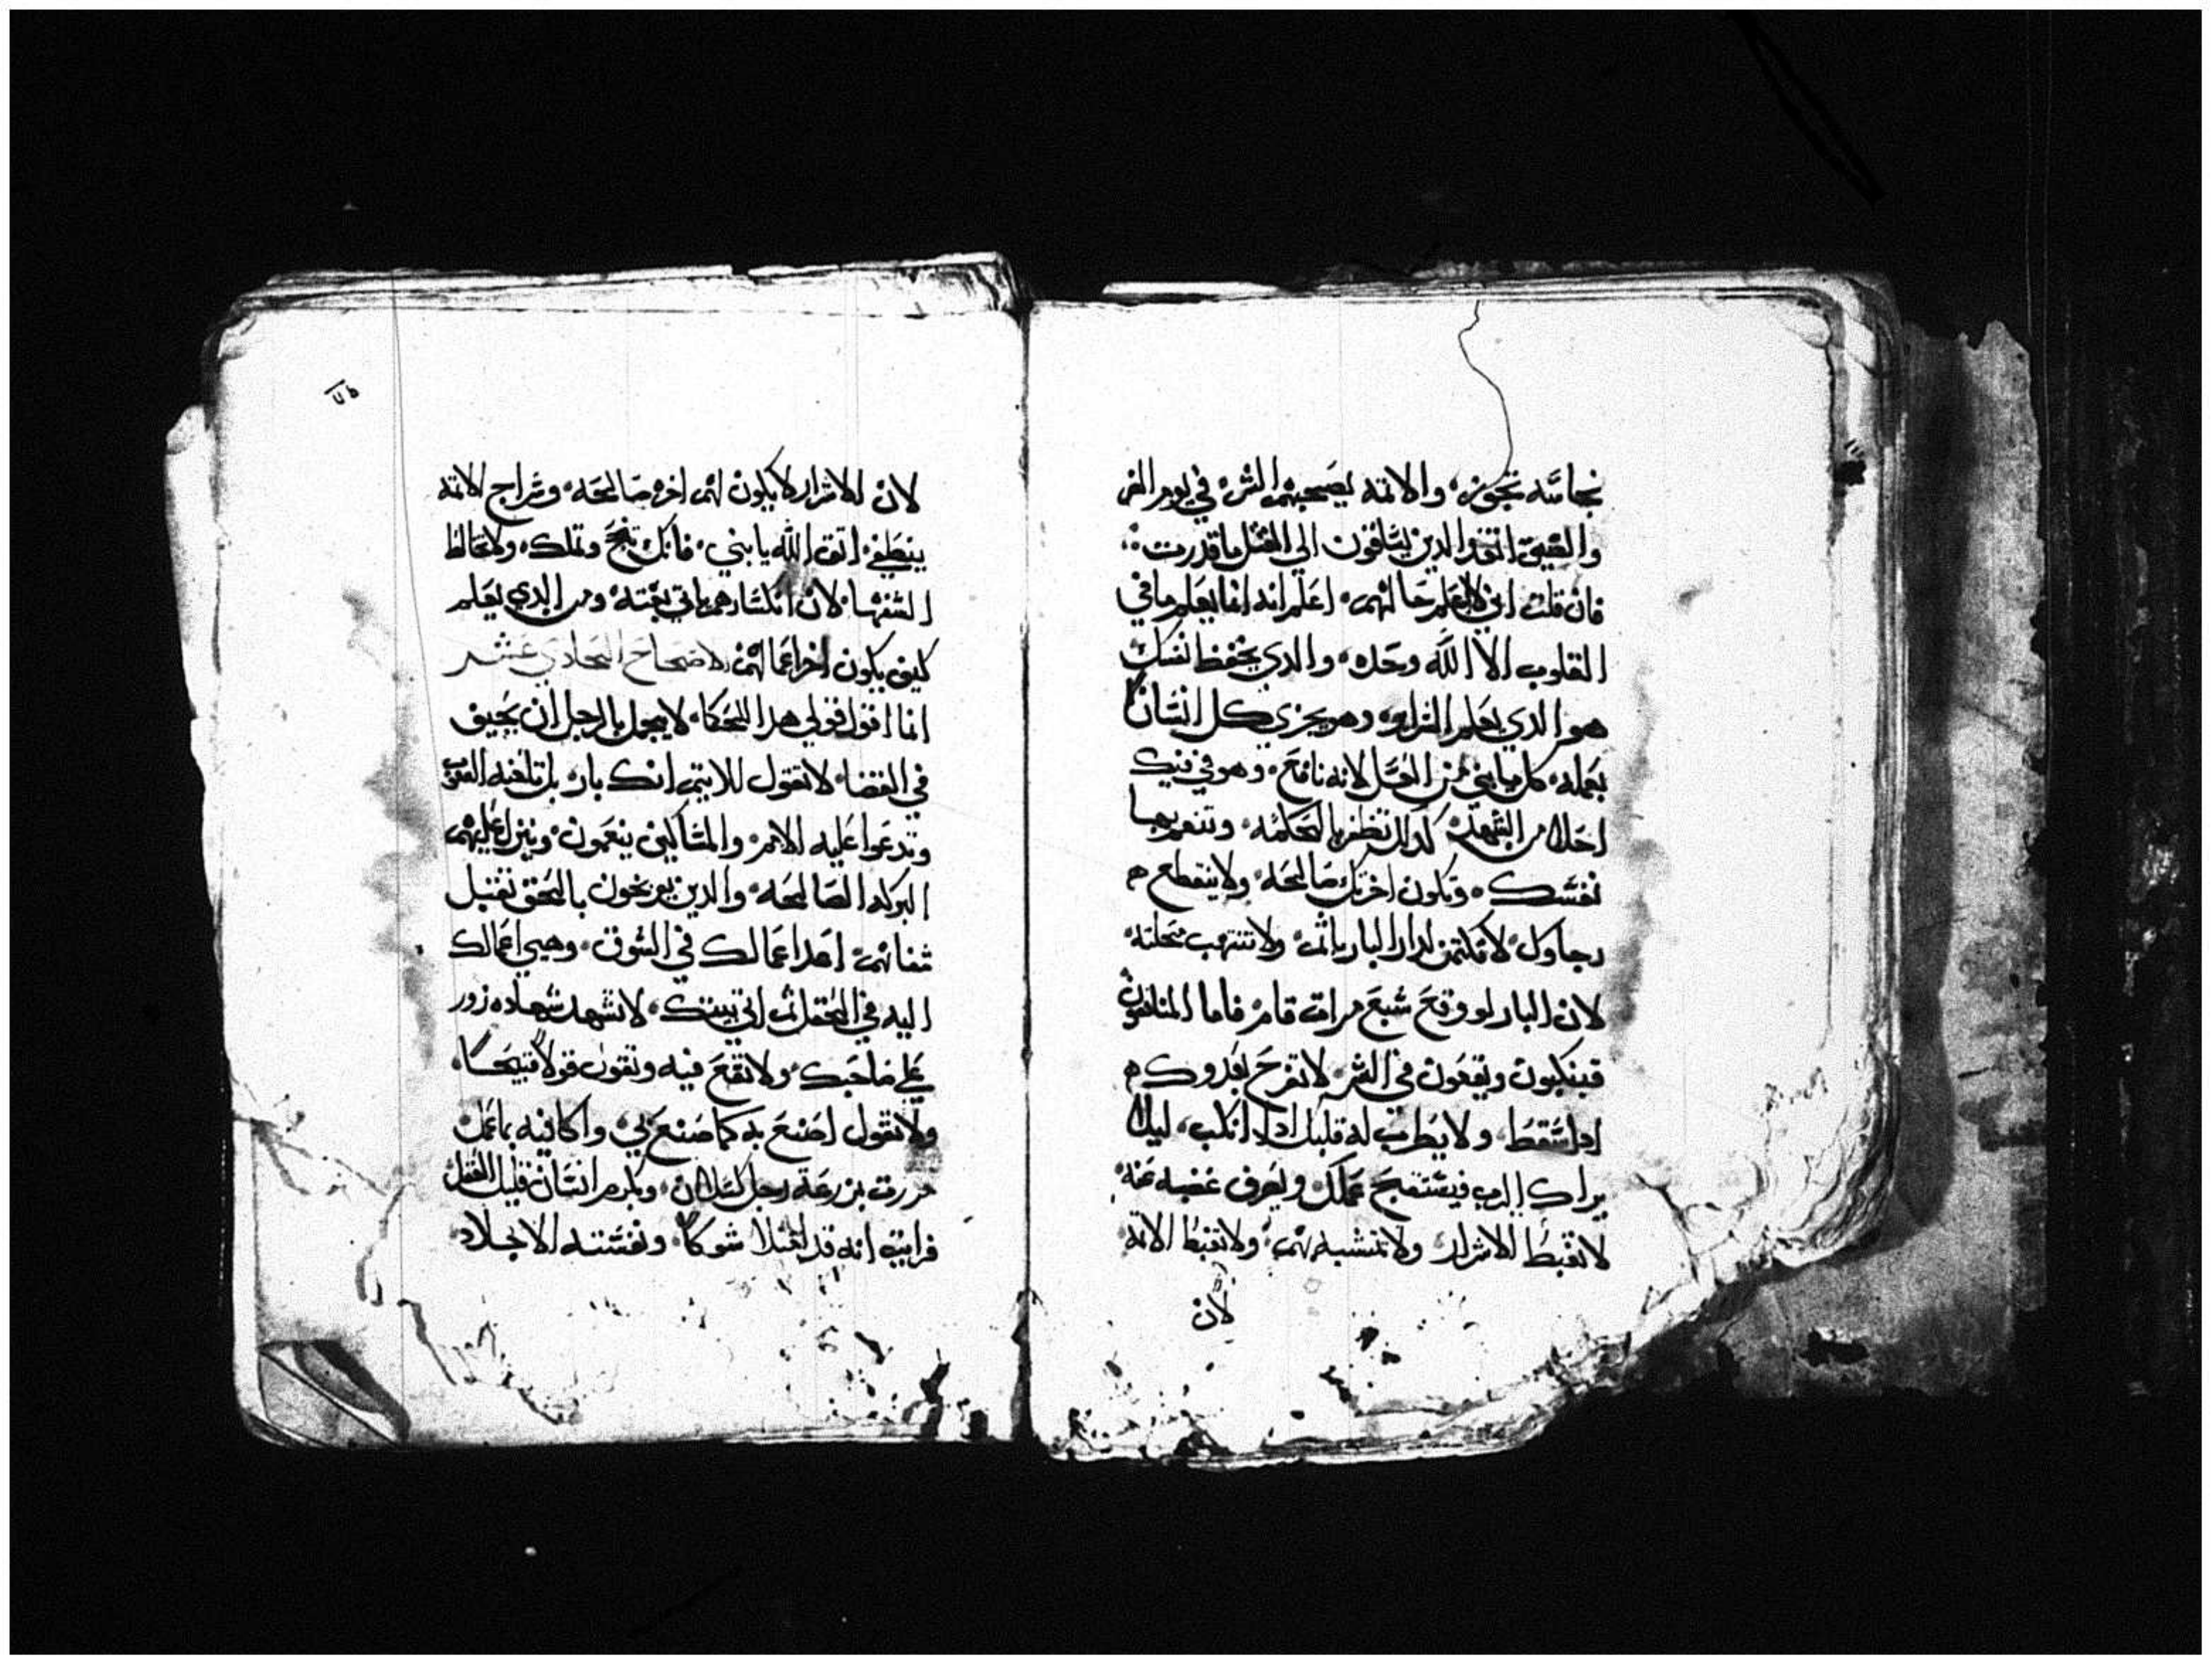 نجاسه تجوز، والاثمه يصحبهم الشر، في يوم الشر
والضيق انقذ الذين يساقون الي القتل ما قدرت
فان قلت اني لا اعلم حالهم، اعلم انه انما يعلم ما في
القلوب الا الله وحده، والدي يحفظ نفسك
هو الدي يعلم السراير، وهو يجزي كل انسان
بعمله، كل يا بني من العسل لانه نافع، وهو في فيك
احلا من الشهد، كدلك تظفر بالحكمه، وتنعم بها
نفسك، وتكون اخرتك صالحه، ولا ينقطع
رجاوك، لا تكمن لدار البار باثم، ولا تنتهب محلته
لان البار لو وقع سبع مرات قام، فاما المنافقون
فينكبون ويقعون في الشر، لا تفرح بعدوك
ادا سقط، ولا يطرب له قلبك ادا انكب، ليلا
يراك الرب فيستقبح عملك، ويصرف غضبه عنه
لا تغبط الاشرار، ولا تتشبه بهم، ولا تغبط الاثمه
لان
لان الاشرار لا يكون لهم اخره صالحه، وسراج الاثمه
ينطفي، اتق الله يا بني، فانك تنج وتملك، ولا تخالط
السفها، لان انكسارهم ياتي بغته، ومن الدي يعلم
كيف يكون اخر اعمالهم الاصحاح الحادي عشر
انما اقول قولي هدا للحكما، لا يجمل بالرجل ان يحيف
في القضا، لا تقول للاثيم انك بار، بل تلعنه الشعوب
وتدعوا عليه الامم، والمساكين ينعمون، وينزل عليهم
البركه الصالحه، والدين يوبخون بالحق تقبل
شفاتهم، اعد اعمالك في السوق، وهيي اعمالك
اليه في الحقل ثم ابني بيتك، لا تشهد شهاده زور
علي صاحبك، ولا تقع فيه وتقول قولا قبيحا،
ولا تقول اصنع به كما صنع بي، واكافيه بما عمل
مررت بزرعة رجل كسلان، وبكرم انسان قليل العقل
فرايت انه قد امتلا شوكا، ونفسته الانجلاد